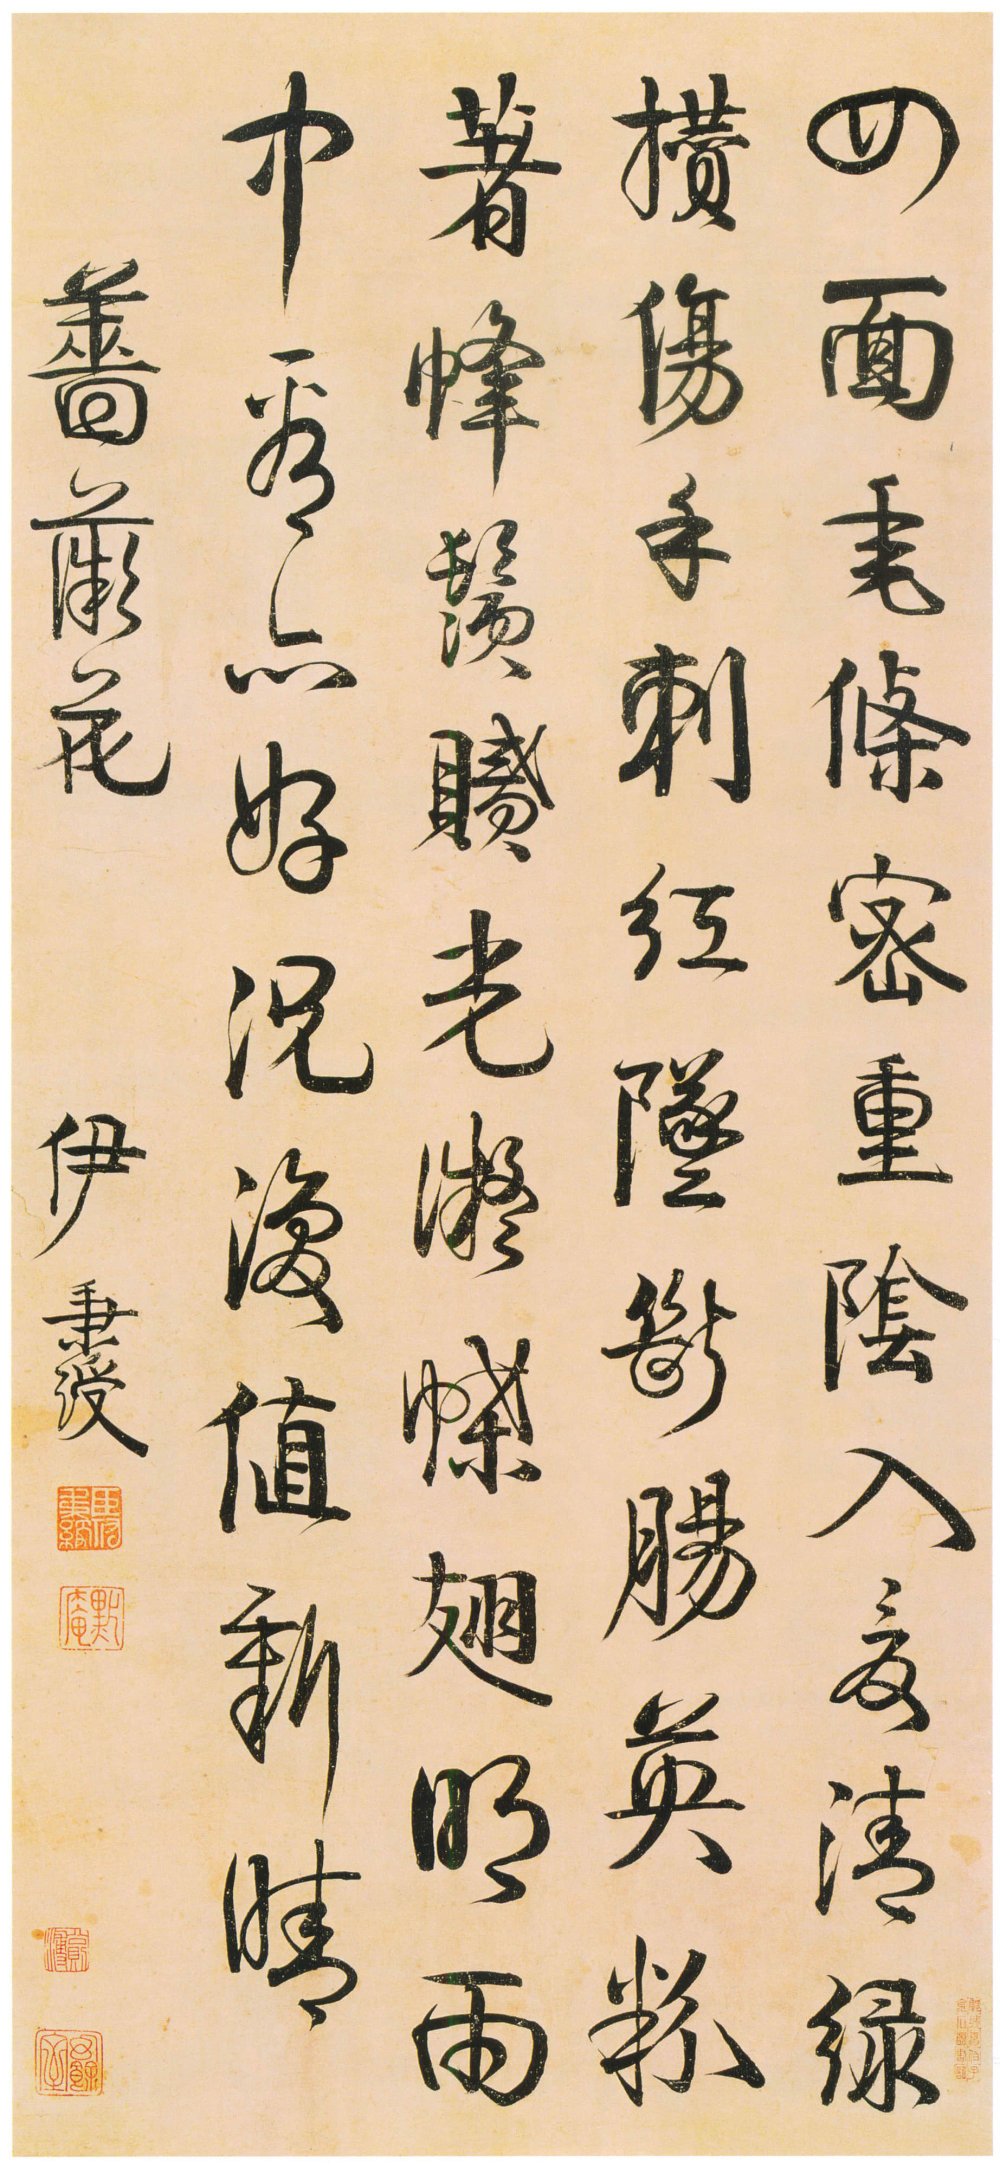 四面垂條密重陰入夏清綠
攢傷手刺紅墜斷腸英粉
著蜂鬚膩光凝蝶翅明雨
中看亦好況復值新晴
薔薇花
伊秉綬